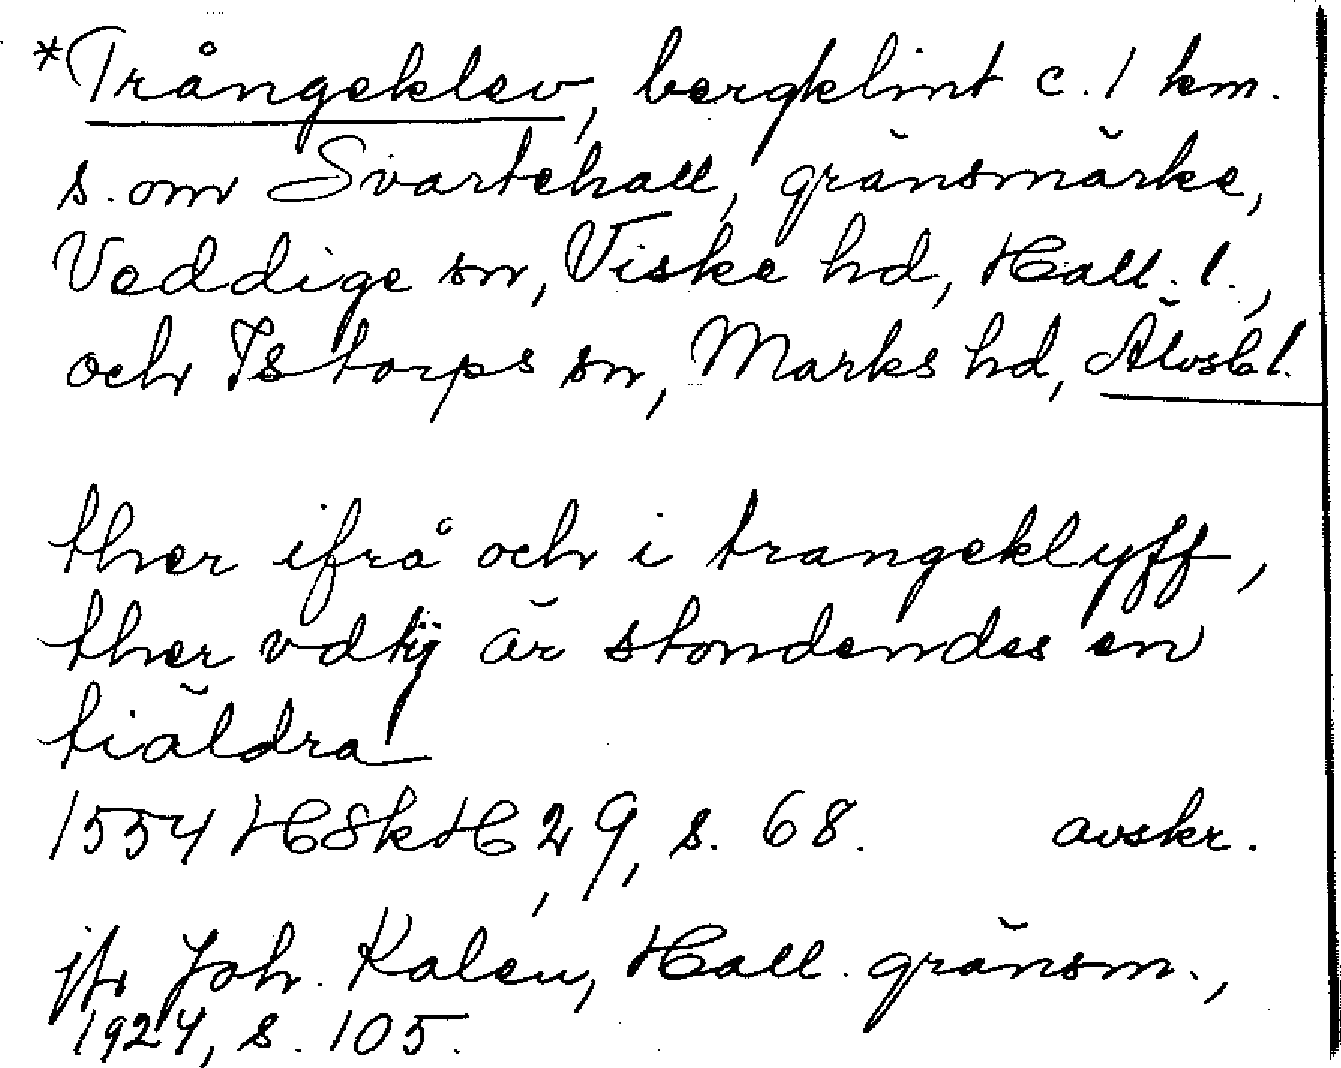 *Trångeklev, bergklint c. 1 km.
s. om Svartehall, gränsmärke,
Veddige sn, Viske hd, Hall. l.,
och Istorps sn, Marks hd, Älvsb l.
ther ifrå och i trangeklyff,
ther vdtij är stondendes en
tiäldra
1554 HSkH, 29, s. 68. avskr.
jfr Joh. Kalen, Hall. gränsm.,
1924, s. 105.